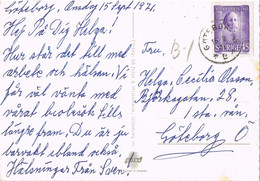 Göteborg, Onsdag 15 Sept 1971.
Hej På Dig Helga!
Hur står det till med
arbete och hälsan. Vi
får väl vänta med
vårat besök tills
längre fram. Du är ju
också.
Hälsningar Från Sven.
Fru.
B-1
Helga Cecilia Olsson
28,
Göteborg Ö
GÖTEBORG
SVERIGE 45